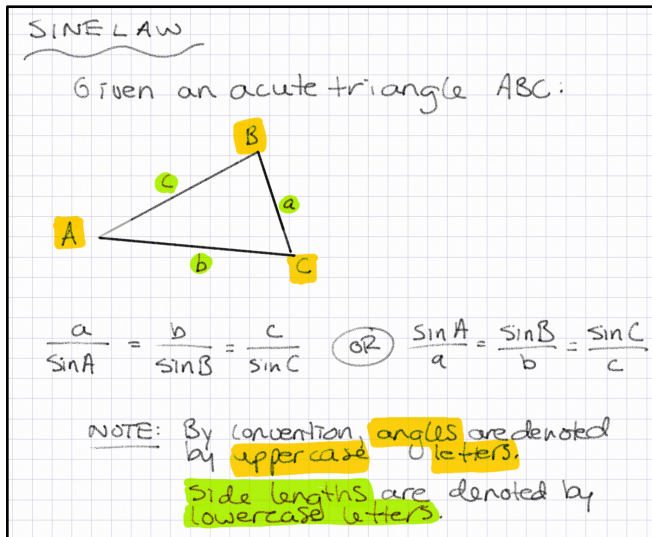 SINE LAW
Given an acute triangle ABC:
B
c
a
A
b
C
a/sinA = b/sinB = c/sinC OR sinA/a = sinB/b = sinC/c
NOTE: By convention, angles are denoted
by uppercase letters.
Side lengths are denoted by
lowercase letters.